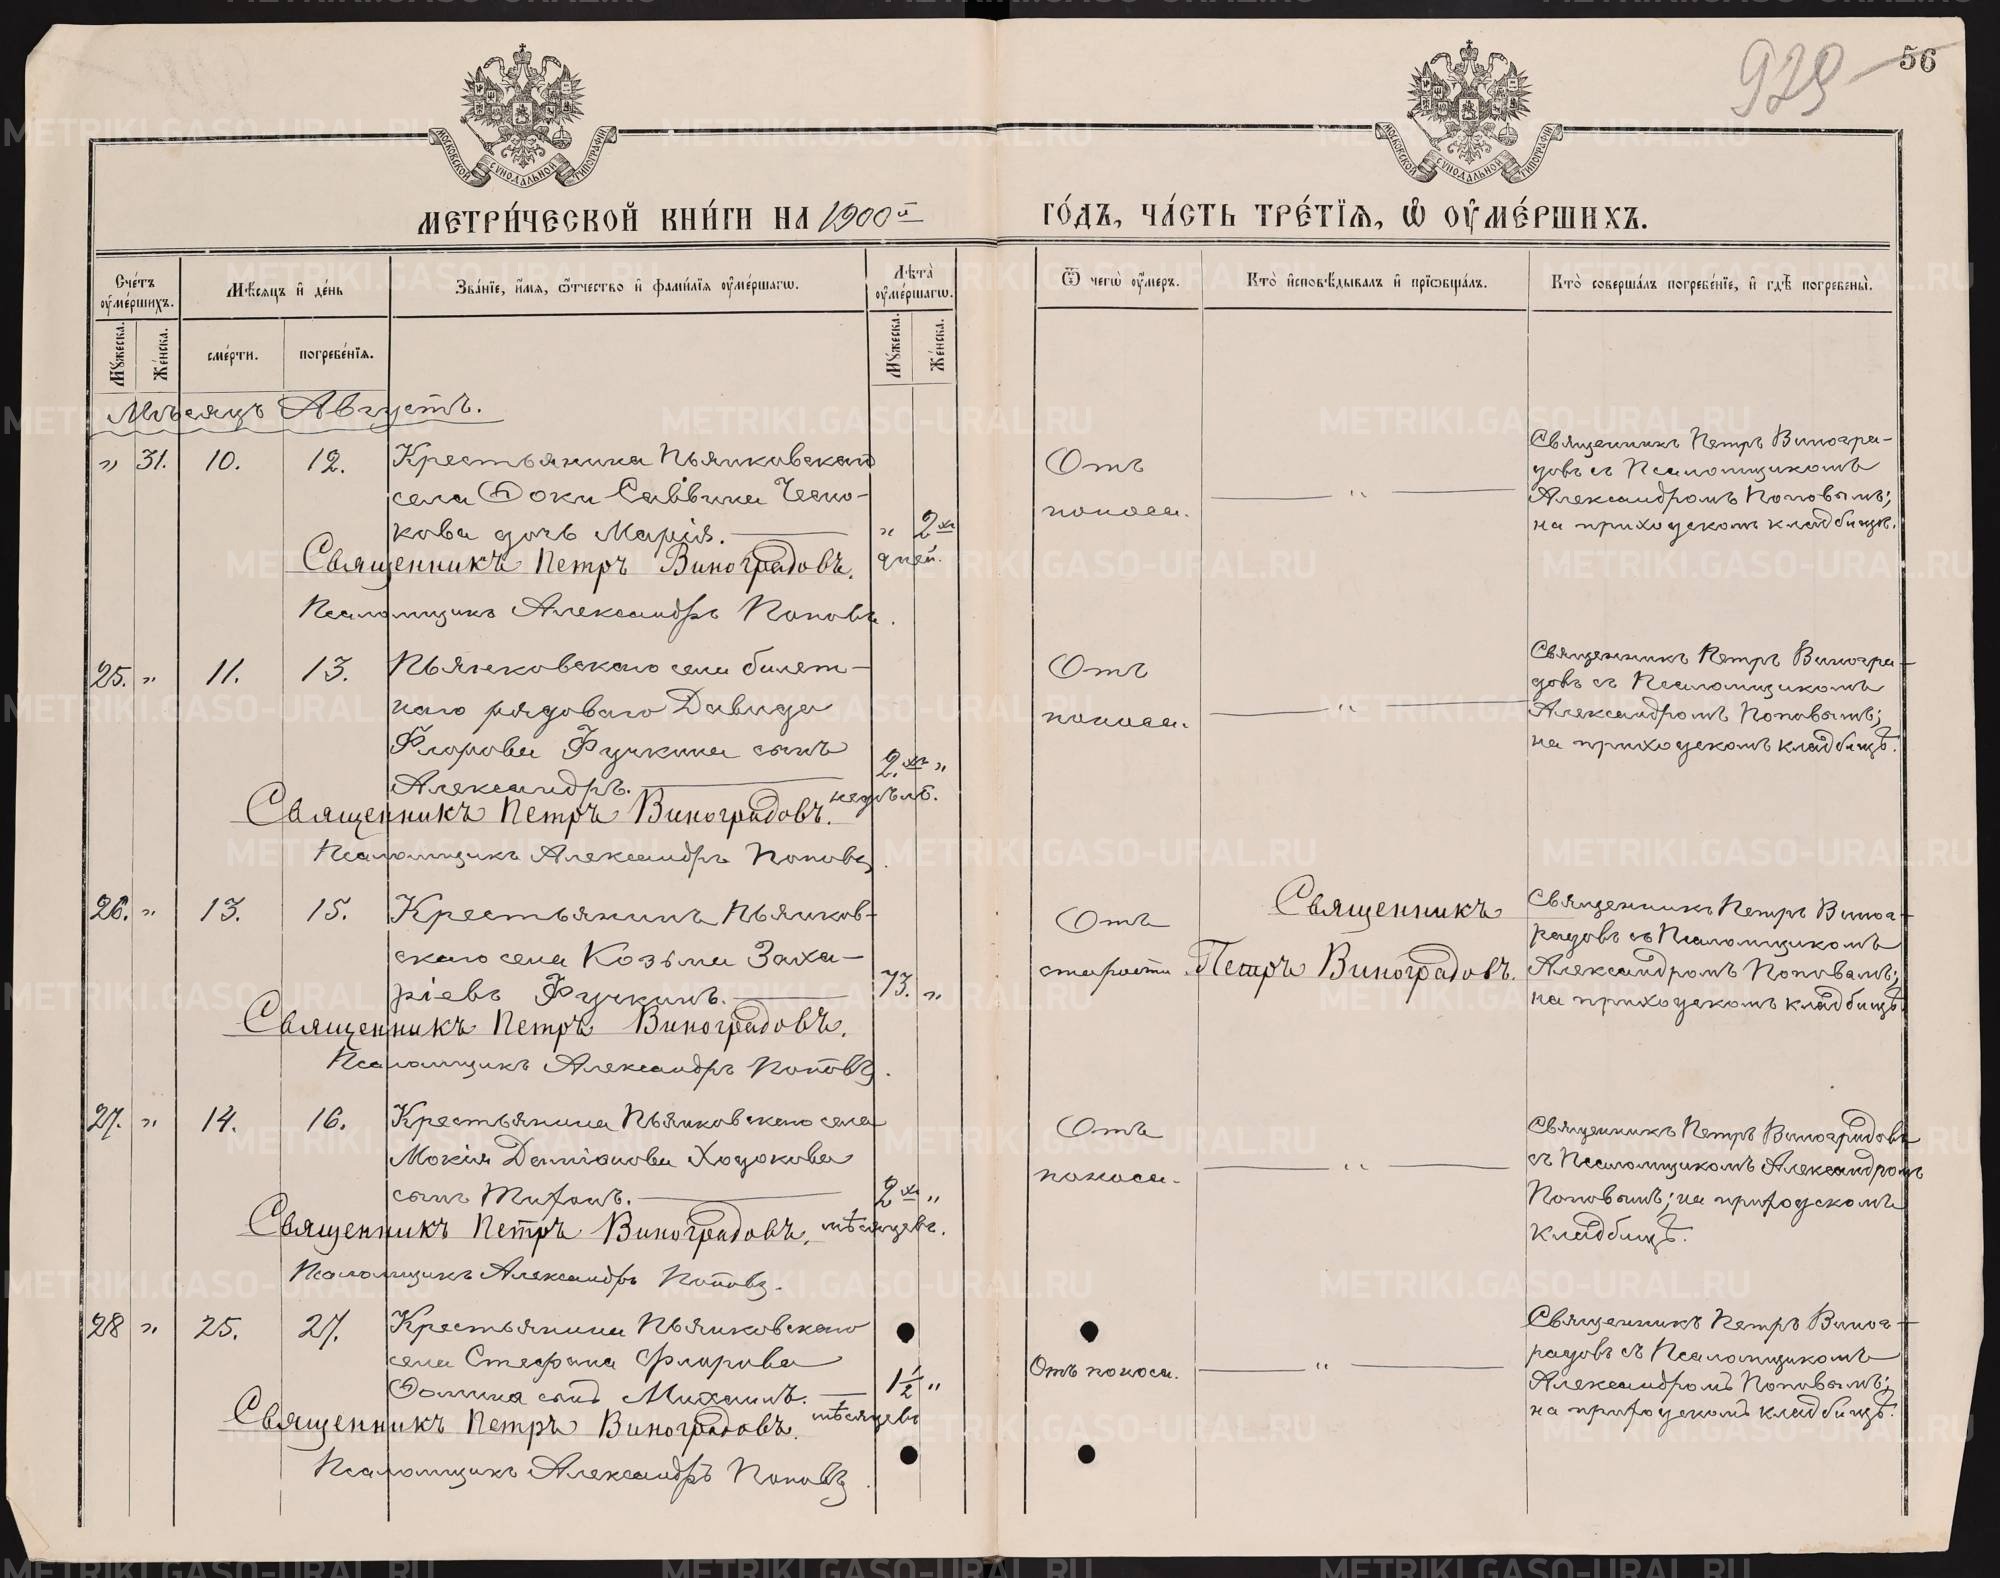 929
56
МОСКОВСКОЙ СУНОДАЛЬНОЙ ТИПОГРАФІИ
МОСКОВСКОЙ СУНОДАЛЬНОЙ ТИПОГРАФІИ
МЕТРИ́ЧЕСКОЙ КНИ́ГИ НА 1900й ГО́ДЪ, ЧА́СТЬ ТРЕ́ТІѦ, Ѡ ОУМЕ́РШИХЪ.
Сче́тъ оумершихъ.
Мѣсяцъ и де́нь
Зва́ніе, и́мя, ѿтчество и фами́лія оуме́ршагѡ.
Лѣта̀ оуме́ршагѡ.
Ѿ чегѡ̀ оумеръ.
Кто̀ исповѣдывалъ и пріѡбща́лъ.
Кто̀ соверша́лъ погребе́ніе, и гдѣ̀ погребены̀.
Мужеска.
Же́нска.
сме́рти.
погребе́нія.
Мужеска.
Же́нска.
Мѣсяцъ Августъ.
„ 31. 10. 12. Крестьянина Пьянковскаго
села Фоки Саввина Чесно-
кова дочь Марія.
„ 2хъ
дней.
Священникъ Петръ Виноградовъ.
Псаломщикъ Александръ Поповъ.
Отъ
поноса.
„
Священникъ Петръ Виногра-
довъ съ Псаломщикомъ
Александромъ Поповымъ;
на приходскомъ кладбищѣ.
25. „ 11. 13. Пьянковскаго села билет-
наго рядоваго Давида
Флорова Фучкина сынъ
Александръ.
2хъ „
недѣль.
Священникъ Петръ Виноградовъ.
Псаломщикъ Александръ Поповъ.
Отъ
поноса.
„
Священникъ Петръ Виногра-
довъ съ Псаломщикомъ
Александромъ Поповымъ;
на приходскомъ кладбищѣ.
26. „ 13. 15. Крестьянинъ Пьянков-
скаго села Козьма Заха-
ріевъ Фучкинъ.
73. „
Священникъ Петръ Виноградовъ.
Псаломщикъ Александръ Поповъ.
Отъ
старости
Священникъ
Петръ Виноградовъ.
Священникъ Петръ Виног-
радовъ съ Псаломщикомъ
Александромъ Поповымъ;
на приходскомъ кладбищѣ.
27. „ 14. 16. Крестьянина Пьянковскаго села
Мокія Даміанова Ходокова
сынъ Тифонъ.
2хъ „
мѣсяцевъ.
Священникъ Петръ Виноградовъ.
Псаломщикъ Александръ Поповъ.
Отъ
поноса.
„
Священникъ Петръ Виноградовъ
съ Псаломщикомъ Александромъ
Поповымъ; на приходскомъ
кладбищѣ.
28 „ 25. 27. Крестьянина Пьянковскаго
села Стефана Флорова
Фомина сынъ Михаилъ.
1½ „
мѣсяцевъ
Священникъ Петръ Виноградовъ.
Псаломщикъ Александръ Поповъ.
Отъ поноса.
„
Священникъ Петръ Виног-
радовъ съ Псаломщикомъ
Александромъ Поповымъ;
на приходскомъ кладбищѣ.
METRIKI.GASO-URAL.RU